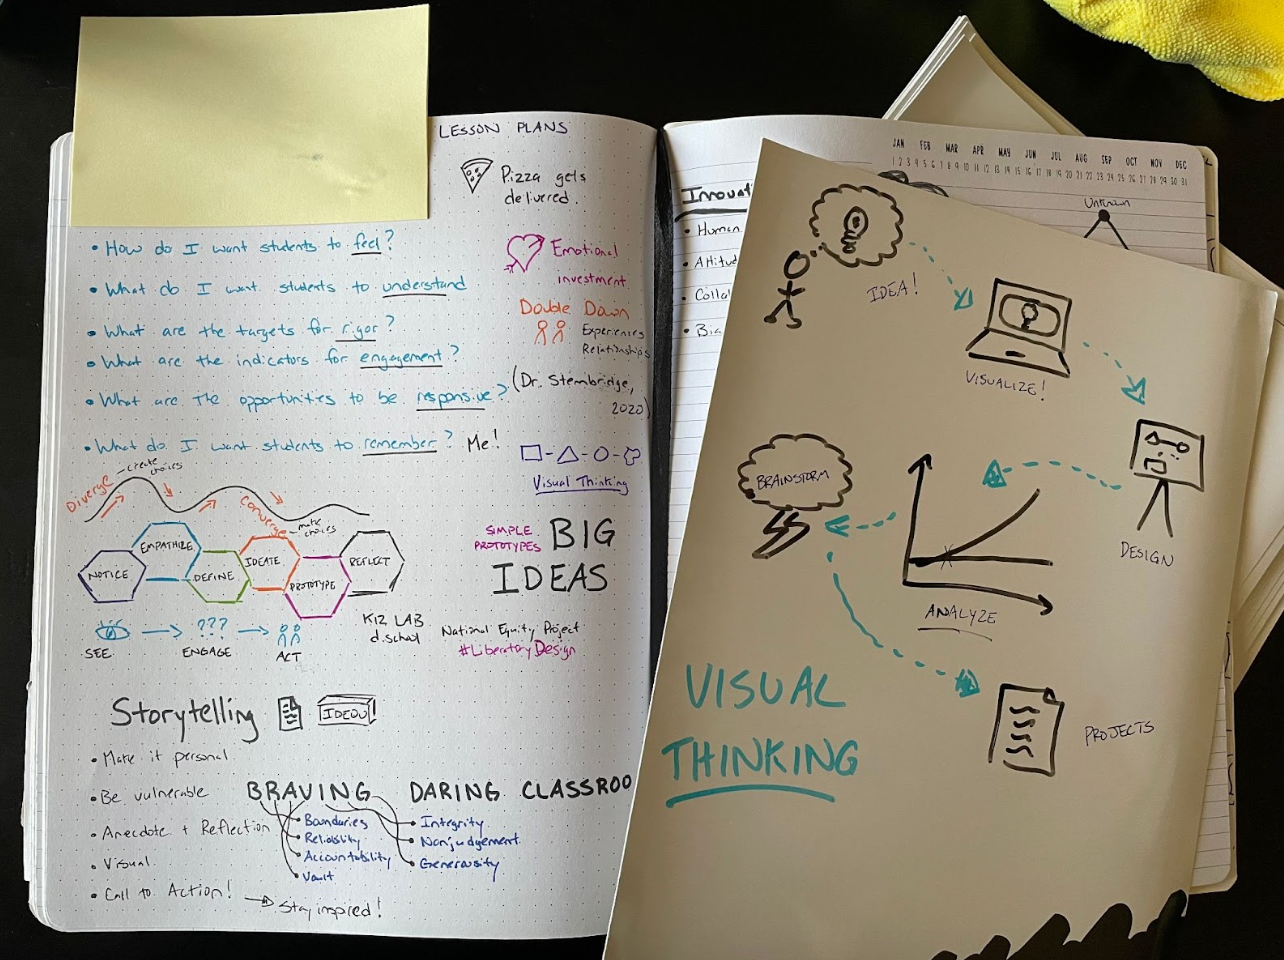 LESSON PLANS
Pizza gets
delivered.
• How do I want students to feel?
• What do I want students to understand
• What are the targets for rigor?
• What are the indicators for engagement?
• What are the opportunities to be responsive?
• What do I want students to remember? Me!
Emotional
investment
Double Down
Experiences
Relationships
(Dr. Stembridge,
2020)
Visual Thinking
Diverge
create
choices
Converge
make
choices
NOTICE
EMPATHIZE
DEFINE
IDEATE
PROTOTYPE
REFLECT
SEE
???
ENGAGE
ACT
K12 LAB
d.school
SIMPLE
PROTOTYPES
BIG
IDEAS
National Equity Project
#LiberatoryDesign
Storytelling
IDEOU
• Make it personal
• Be vulnerable
• Anecdote + Reflection
• Visual
• Call to Action!
Stay inspired!
BRAVING
• Boundaries
• Reliability
• Accountability
• Vault
• Integrity
• Nonjudgement
• Generousity
DARING CLASSROO
JAN FEB MAR APR MAY JUN JUL AUG SEP OCT NOV DEC
1 2 3 4 5 6 7 8 9 10 11 12 13 14 15 16 17 18 19 20 21 22 23 24 25 26 27 28 29 30 31
Innovati
• Human
• Attitud
• Colla
Unknown
IDEA!
VISUALIZE!
DESIGN
ANALYZE
BRAINSTORM
PROJECTS
VISUAL
THINKING